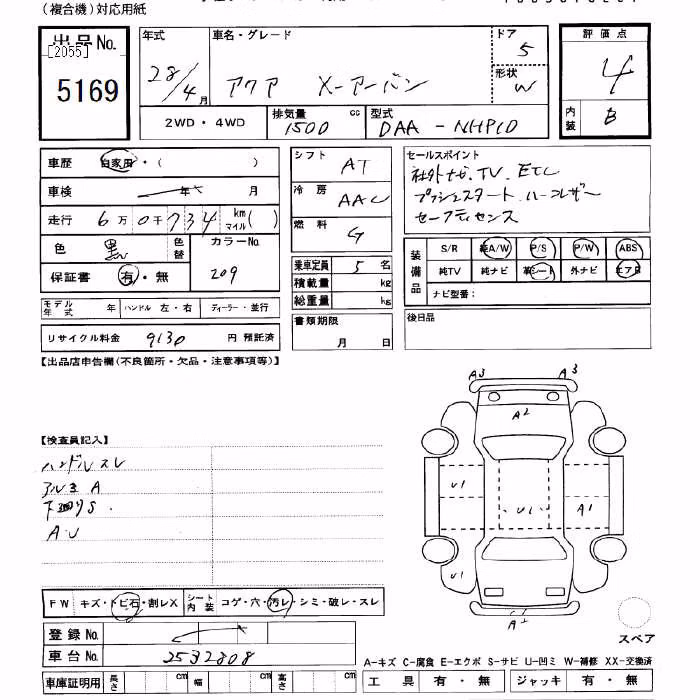 (複合機)対応用紙
出品No.
[2055]
5169
年式
28/4月
車名・グレード
アクア X-アーバン
ドア
5
形状
W
評価点
4
内装
B
2WD・4WD
排気量
1500 cc
型式
DAA-NHP10
車歴 自家用・( )
車検 年 月
走行 6万0千734 km マイル( )
色 黒 色替
カラーNo.
209
保証書 有・無
モデル年式 年 ハンドル 左・右 ディーラー・並行
リサイクル料金 9130 円 預託済
シフト AT
冷房 AAC
燃料 G
乗車定員 5 名
積載量 kg
総重量 kg
書類期限
月 日
セールスポイント
社外ナビ、TV、ETC
プッシュスタート ハーフレザー
セーフティセンス
装備品
S/R 純A/W P/S P/W ABS
純TV 純ナビ 革シート 外ナビ エアB
ナビ型番:
後日品
【出品店申告欄(不良箇所・欠品・注意事項等)】
【検査員記入】
ハンドルスレ
アルミ A
下廻りS
A・U
FW キズ・トビ石・割レX シート内装 コゲ・穴・汚レ・シミ・破レ・スレ
登録No.
車台No. 2532808
車庫証明用 長さ cm 幅 cm 高さ cm
A3 A3
A2
U1 U1 A1
U1
スペア
A-キズ C-腐食 E-エクボ S-サビ U-凹ミ W-補修 XX-交換済
工具 有・無 ジャッキ 有・無